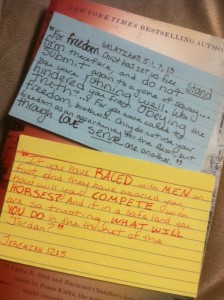 NEW YORK TIMES BESTSELLING AUTHO
GALATIANS 5:1,7,13
"For freedom Christ has set us free;
firm therefore, and do not stand
submit again to a yoke of slavery...
you were running well. Who
hindered you from obeying the
truth? For you were called to
freedom, brothers. Only do not use your
freedom as an opportunity for the flesh, but
through love serve one another."
"If you have RACED with MEN on
foot, and they have wearied you,
how will you COMPETE with
HORSES? And if in a safe land you
are so trusting, WHAT WILL
YOU DO in the thicket of the
Jordan?"
JEREMIAH 12:5
Philip K. Dick and Raymond Chandler's
novel by Franz Kafka, the